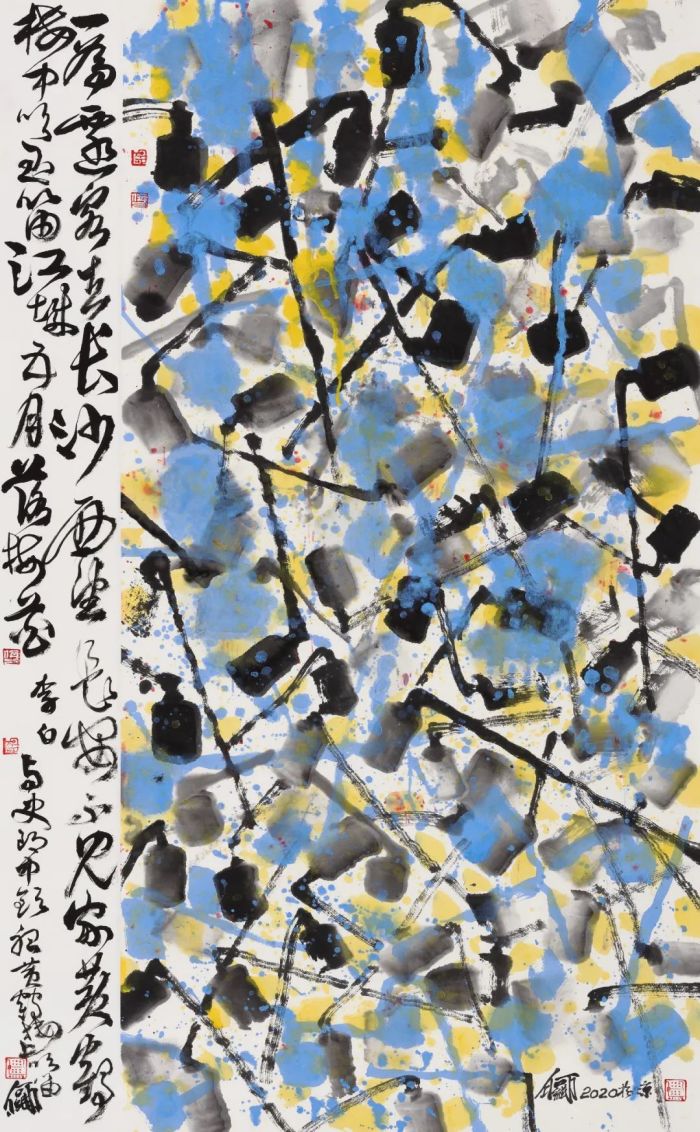 一為遷客去长沙西望长安不见家黄鹤
楼中吹玉笛江城五月落梅花
李白
与史郎中钦听黄鹤楼上吹笛
2020於京